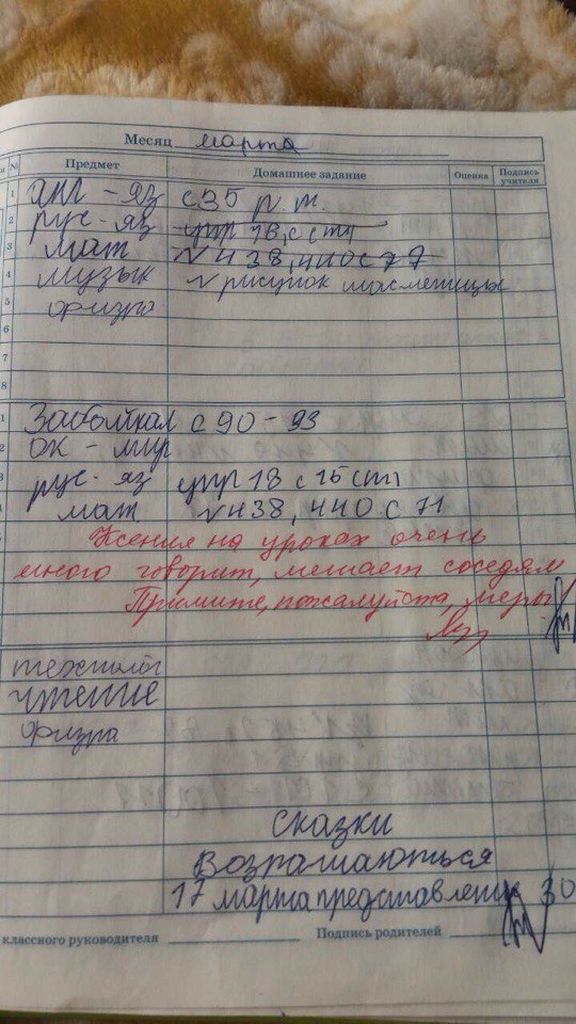 Месяц марта
№ Предмет Домашнее задание Оценка Подпись учителя
1 анг - яз с 35 р.т.
2 рус - яз упр 18, с ст1
3 мат N 438, 440 с 77
4 музык рисунок масметицы
5 физра
6
7
8
1 Забайкал с 90 - 93
2 ок - мир
3 рус - яз упр 18 с 15 ст1
мат N 438, 440 с 71
Ксения на уроках очень
много говорит, мешает соседям
Примите, пожалуйста, меры
технолог
чтение
физра
сказки
Возращаються
17 марта представление 30
классного руководителя Подпись родителей